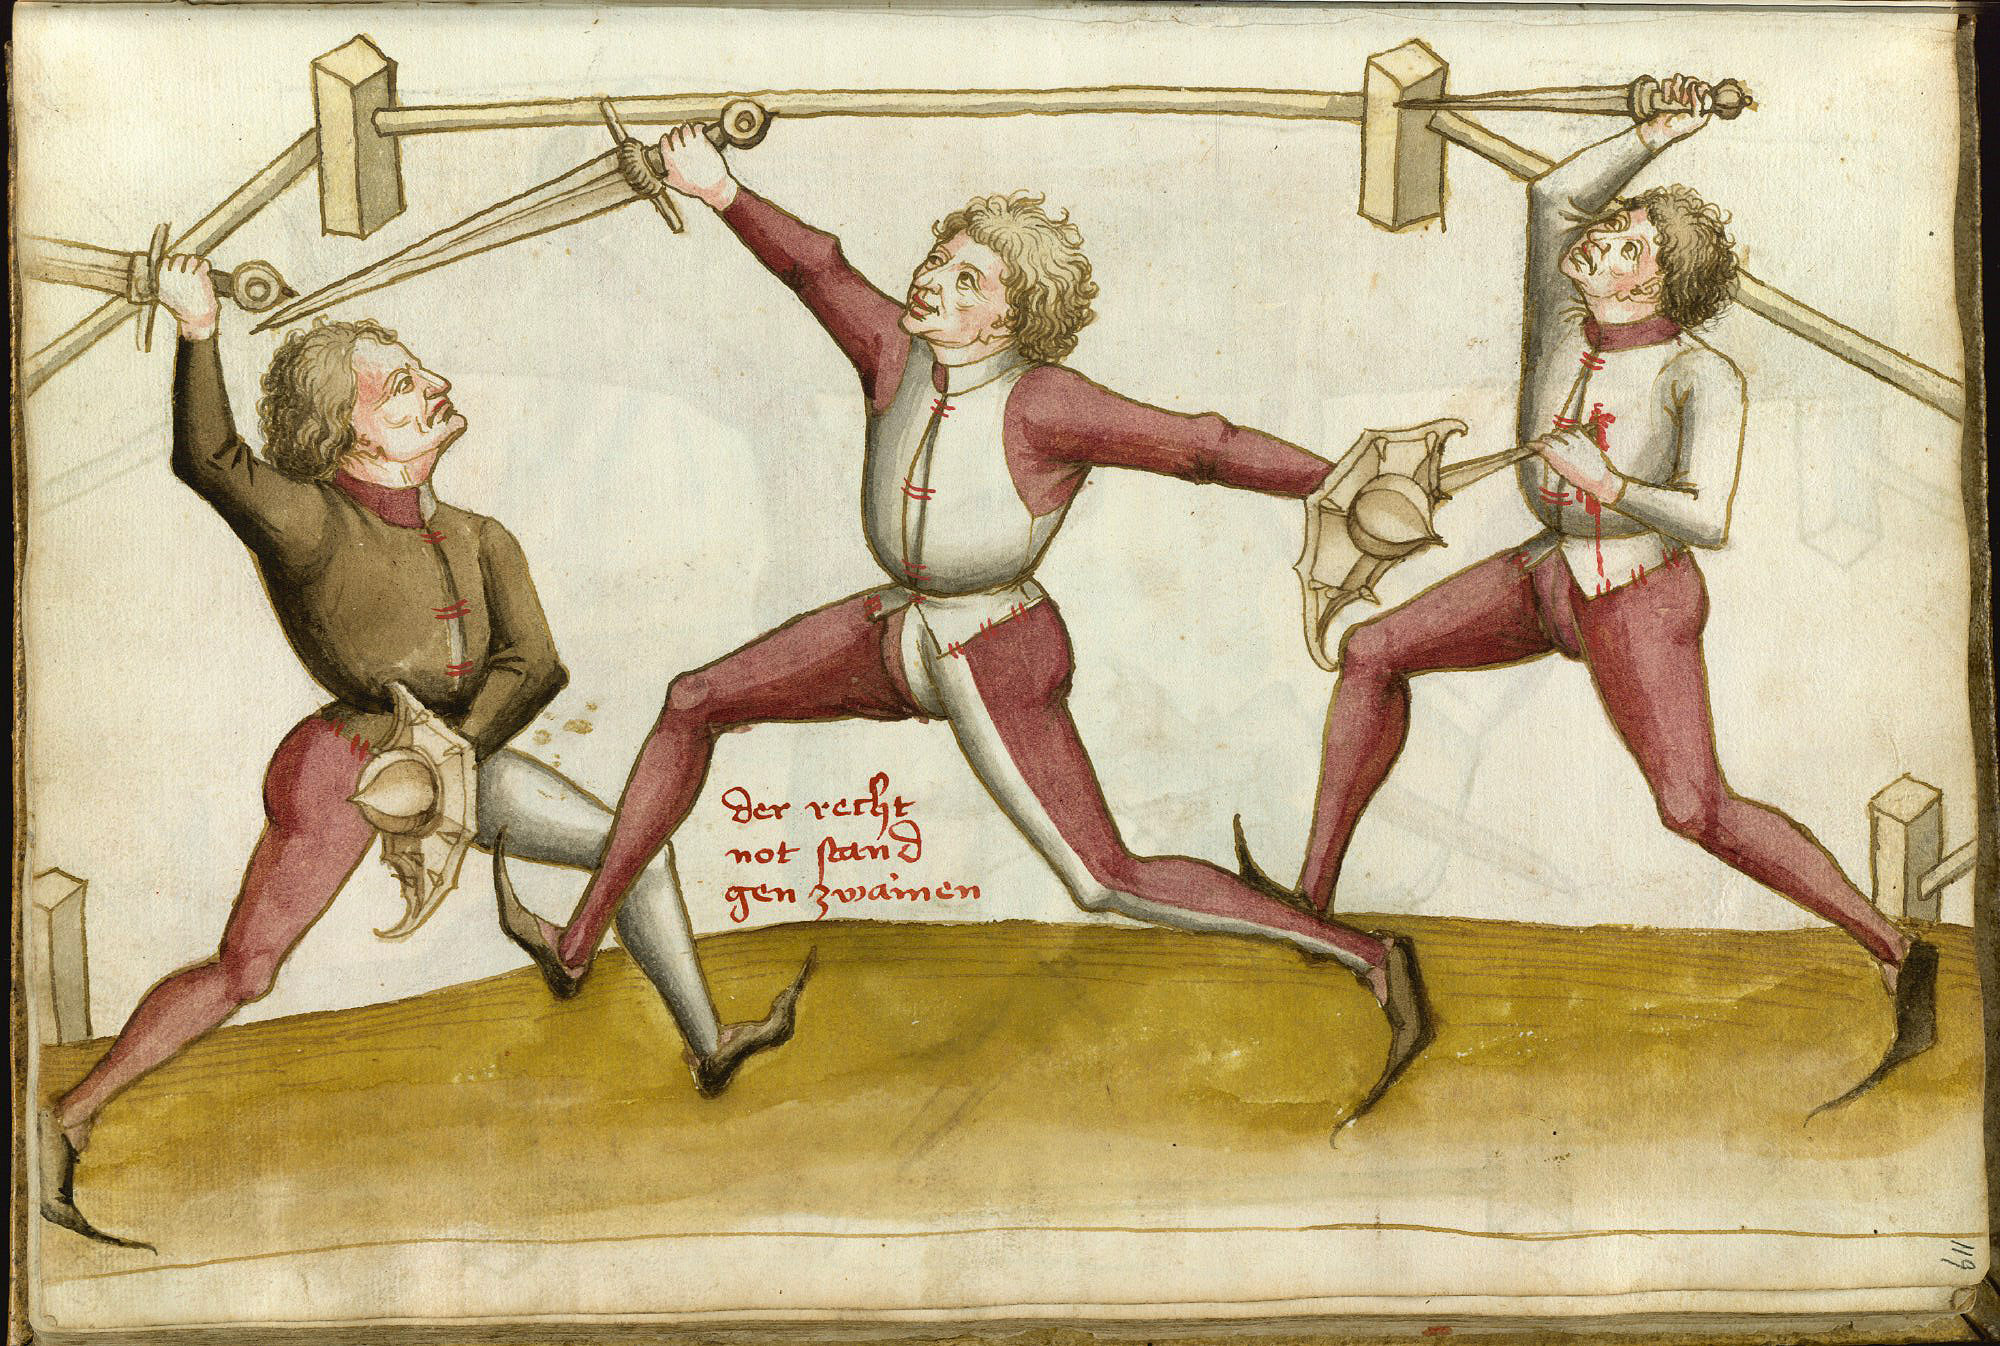 der recht
not stand
gen zwainen
119